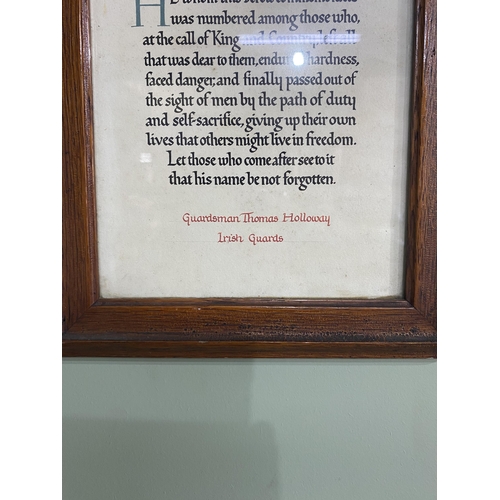 HE whom this scroll commemorates
was numbered among those who,
at the call of King and Country, left all
that was dear to them, endured hardness,
faced danger, and finally passed out of
the sight of men by the path of duty
and self-sacrifice, giving up their own
lives that others might live in freedom.
Let those who come after see to it
that his name be not forgotten.
Guardsman Thomas Holloway
Irish Guards